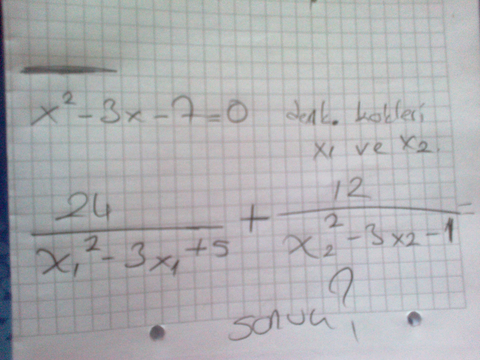 x² - 3x - 7 = 0 denk. kökleri
x₁ ve x₂.
24/(x₁² - 3x₁ + 5) + 12/(x₂² - 3x₂ - 1) =
?
sonuç